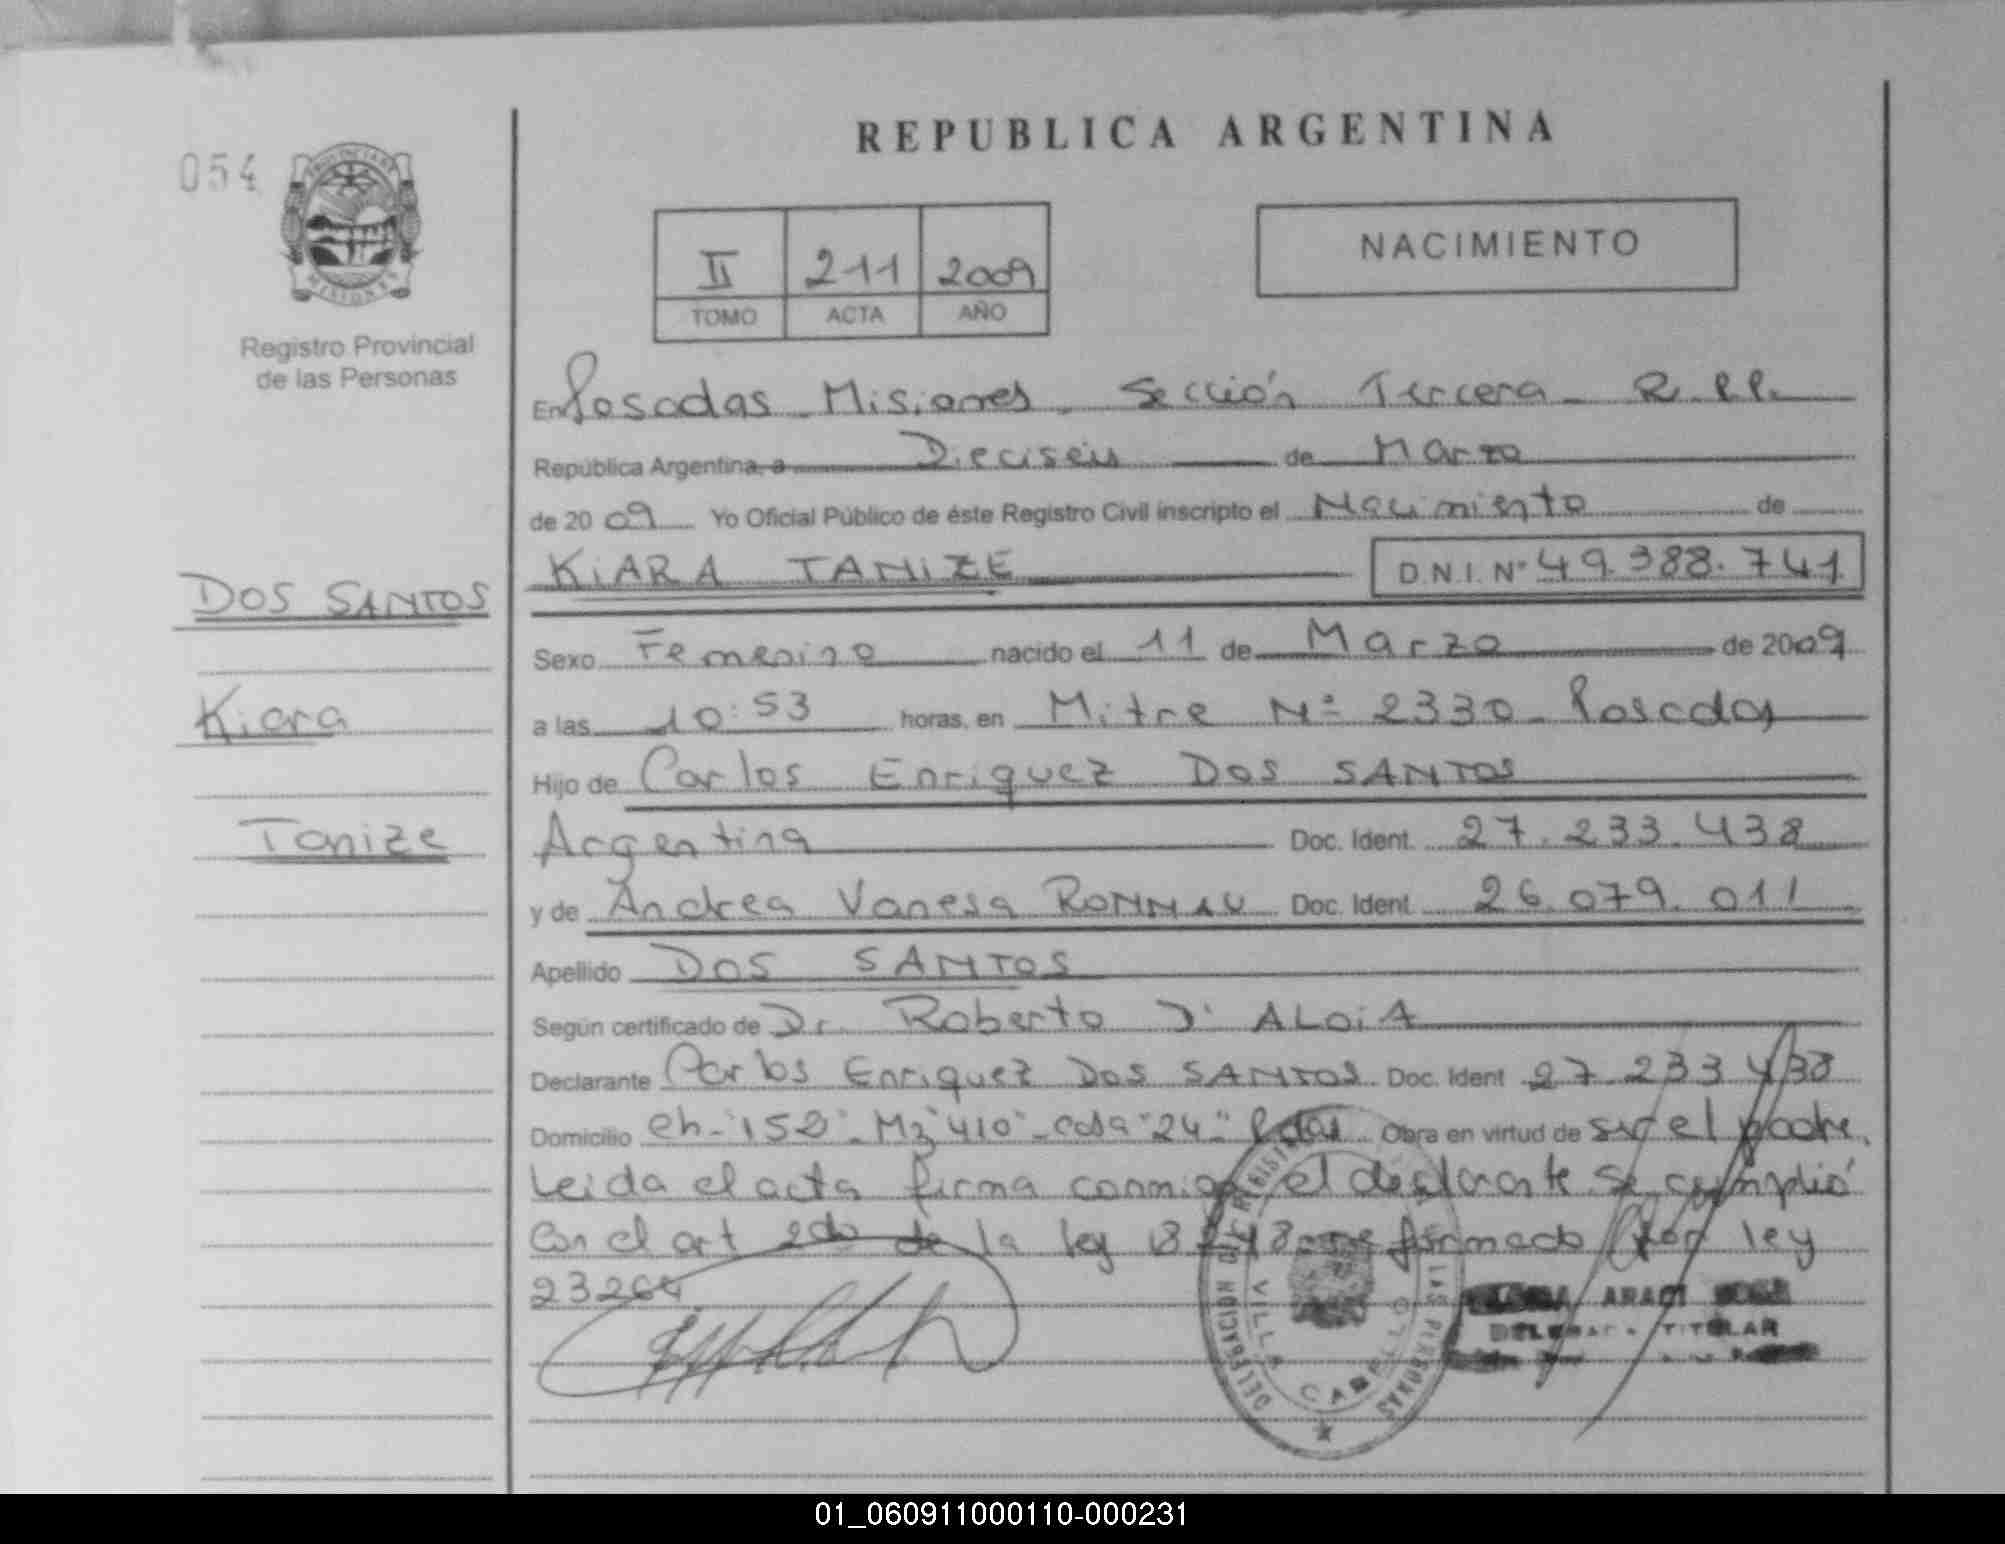 054
REPUBLICA ARGENTINA
II 211 2009
TOMO ACTA AÑO
NACIMIENTO
MISIONES
Registro Provincial
de las Personas
En Posadas Misiones Sección Tercera R.P.P.
República Argentina, a Dieciséis de Marzo
de 2009 Yo Oficial Público de éste Registro Civil inscripto el Nacimiento de
KIARA TANIZE D.N.I. Nº 49.388.741
DOS SANTOS
Sexo Femenino nacido el 11 de Marzo de 2009
Kiara
a las 10:53 horas, en Mitre Nº 2330 - Posadas
Hijo de Carlos Enriquez DOS SANTOS
Tanize
Argentina Doc. Ident. 27.233.438
y de Andrea Vanesa Doc. Ident. 26.079.011
Apellido DOS SANTOS
Según certificado de Dr. Roberto D' ALOIA
Declarante Carlos Enriquez DOS SANTOS Doc. Ident 27.233.438
Domicilio Ch-"152"-Mz"410"-casa"24"- Pdas Obra en virtud de ser el padre.
Leida el acta firma conmigo el declarante se cumplió
con el art 2do de la ley 18248 reformado por ley
23264.
DELEGACION DEL REGISTRO LAS PERSONAS
VILLA CABELLO
ARACI
TITULAR
01_060911000110-000231